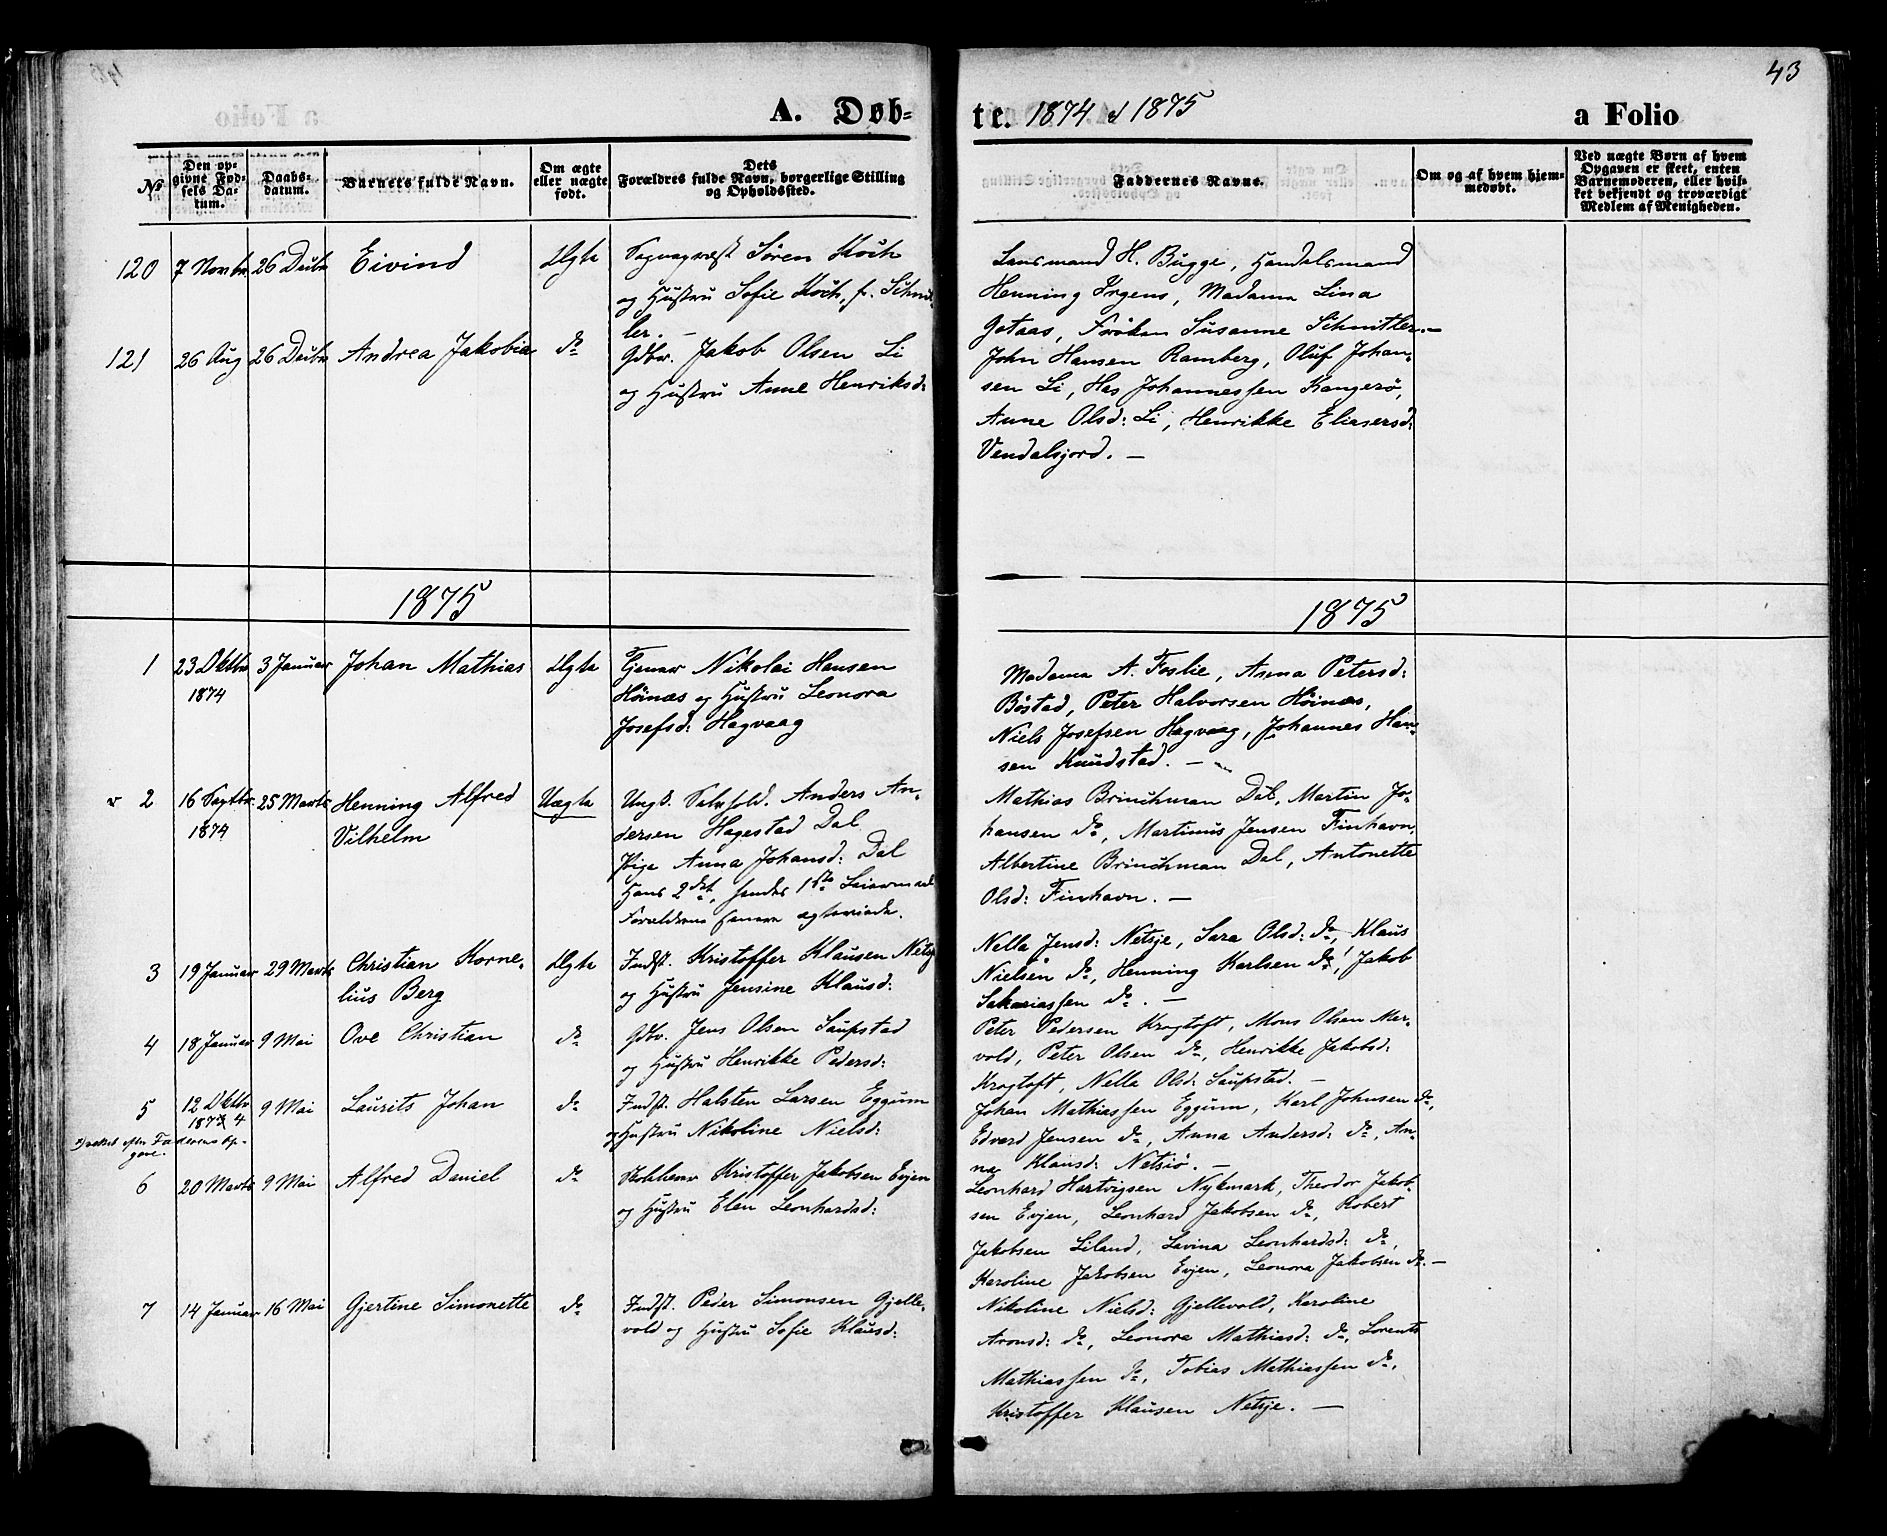 43
A. Døb-
te. 1874 & 1875
a Folio
No
Den op-
givne Fød-
sels Da-
tum.
Daabs-
datum.
Barnets fulde Navn.
Om ægte
eller uægte
født.
Dets
Forældres fulde Navn, borgerlige Stilling
og Opholdssted.
Faddernes Navne.
Om og af hvem hjem-
medøbt.
Ved uægte Børn af hvem
Opgaven er skeet, enten
Barnemoderen, eller hvil-
ket bekjendt og troværdigt
Medlem af Menigheden.
120 7 Novbr 26 Decbr Eivind Ægte
Sogneprest Sören Koch
og Hustru Sofie Koch, f. Schmit-
ler. —
Lensmand H. Bugge, Handelsmand
Henning Irgens, Madame Lina
Gotaas, Fröken Susanne Schmitler. —
121 26 Aug 26 Decbr Andrea Jakobia do
Gdbr. Jakob Olsen Li
og Hustru Anne Henriksd:
John Hansen Ramberg, Oluf Johan-
sen Li, Hans Johannessen Kangerö,
Anne Olsd: Li, Henrikke Eliasersd:
Vendalsjord. —
1875
1875
1 23 Oktbr 3 Januar Johan Mathias Ægte
1874
Nikolai Hansen
Höinæs og Hustru Leonora
Josefsd: Hagvaag
Madame A. Foslie, Anna Petersd:
Böstad, Peter Halvorsen Höinæs,
Niels Josefsen Hagvaag, Johannes Han-
sen Knudstad. —
2 16 Septbr 25 Marts Henning Alfred Uægte
1874 Vilhelm
Ungk. Anders An-
dersen Hagestad Dal
Pige Anna Johansd: Dal
Hans 2det, hendes 1ste Leiermaal
Forældrene senere ægteviede.
Mathias Brinchman Dal, Martin Jo-
hansen do, Martinus Jensen Finhavn,
Albertine Brinchman Dal, Antonette
Olsd: Finhavn. —
3 19 Januar 29 Marts Christian Korne- Ægte
lius Berg
Indst. Kristoffer Klausen Netsje
og Hustru Jensine Klausd:
Nella Jensd: Netsje, Sara Olsd: do, Klaus
Nielsen do, Henning Karlsen do, Jakob
Sakariassen do. —
4 18 Januar 9 Mai Ove Christian do
Gdbr. Jens Olsen Saupstad
og Hustru Henrikke Pedersd:
Peter Pedersen Krogtoft, Mons Olsen Mer-
vold, Peter Olsen do, Henrikke Jakobsd:
Krogtoft, Nella Olsd: Saupstad. —
5 12 Oktbr 9 Mai Laurits Johan do
1873 4
rettet efter Faderens Op-
gave.
Indst. Halsten Larsen Eggum
og Hustru Nikoline Nielsd:
Johan Mathiassen Eggum, Karl Johnsen do,
Edvard Jensen do, Anna Andersd: do, An-
na Klausd: Netsiö. —
6 20 Marts 9 Mai Alfred Daniel do
Kristoffer Jakobsen Evjen
og Hustru Elen Leonhardsd:
Leonhard Hartvigsen Nykmark, Theodor Jakob-
sen Evjen, Leonhard Jakobsen do, Robert
Jakobsen Liland, Lavina Leonhardsd: do,
Karoline Jakobsen Evjen, Leonora Jakobsen do. —
7 14 Januar 16 Mai Gjertine Simonette do
Indst. Peder Simonsen Gjelle-
vold og Hustru Sofie Klausd:
Nikoline Nielsd: Gjellevold, Karoline
Aronsd: do, Leonora Mathiasd: do, Lorents
Mathiassen do, Tobias Mathiassen do,
Kristoffer Klausen Netsje. —